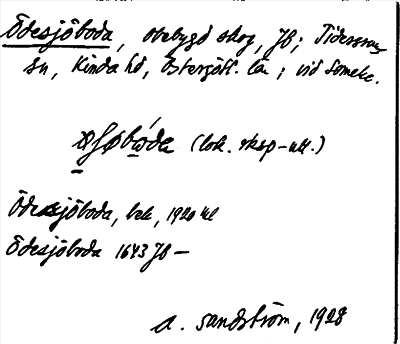 Ödesjöboda, obebygd skog, JB; Tidersrums
sn, Kinda hd, Östergötl. län; vid Someke.
(lok. rksp-utt.)
Ödesjöboda, bek, 1920 kl
Ödesjöboda 1643 JB —
A. Sandström, 1928